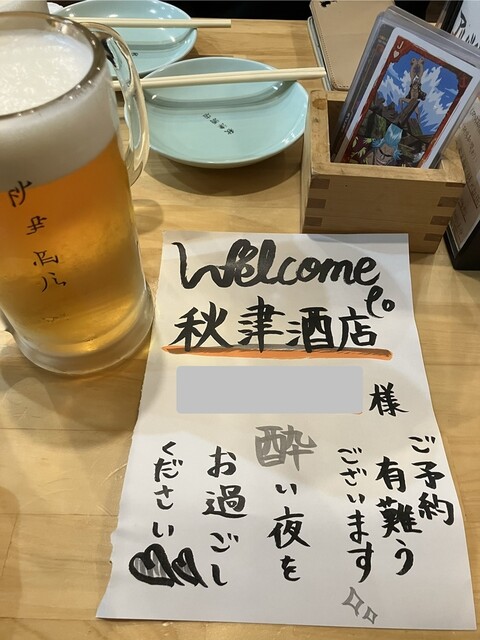 Welcome
to
秋津酒店
様
ご予約
有難う
ございます
酔い夜を
お過ごし
ください
J